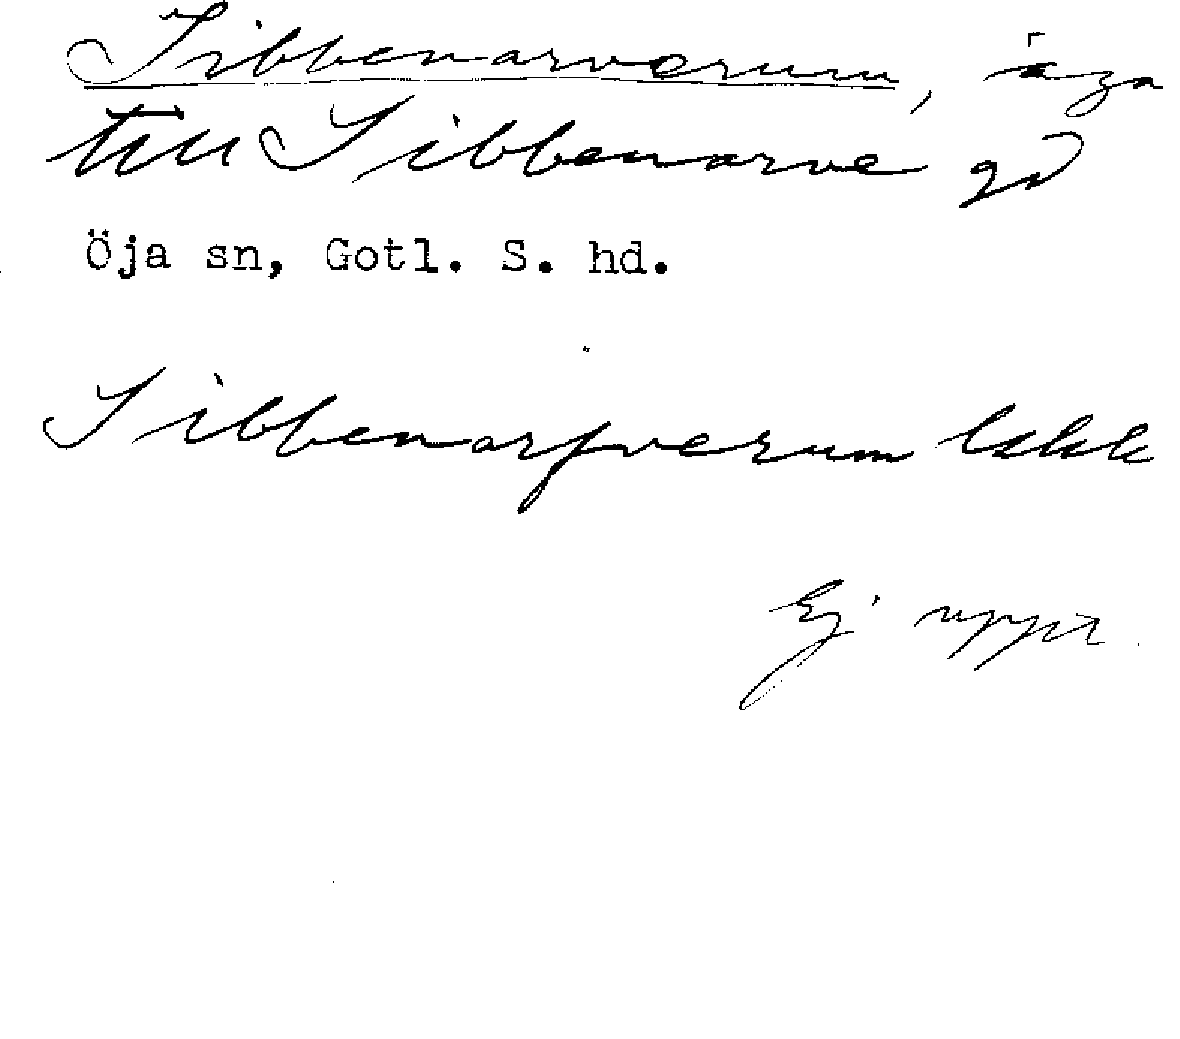 Sibbenarverum, äga
till Sibbenarve gd
Öja sn, Gotl. S. hd.
Sibbenarfverum Lskk
Ej uppt.